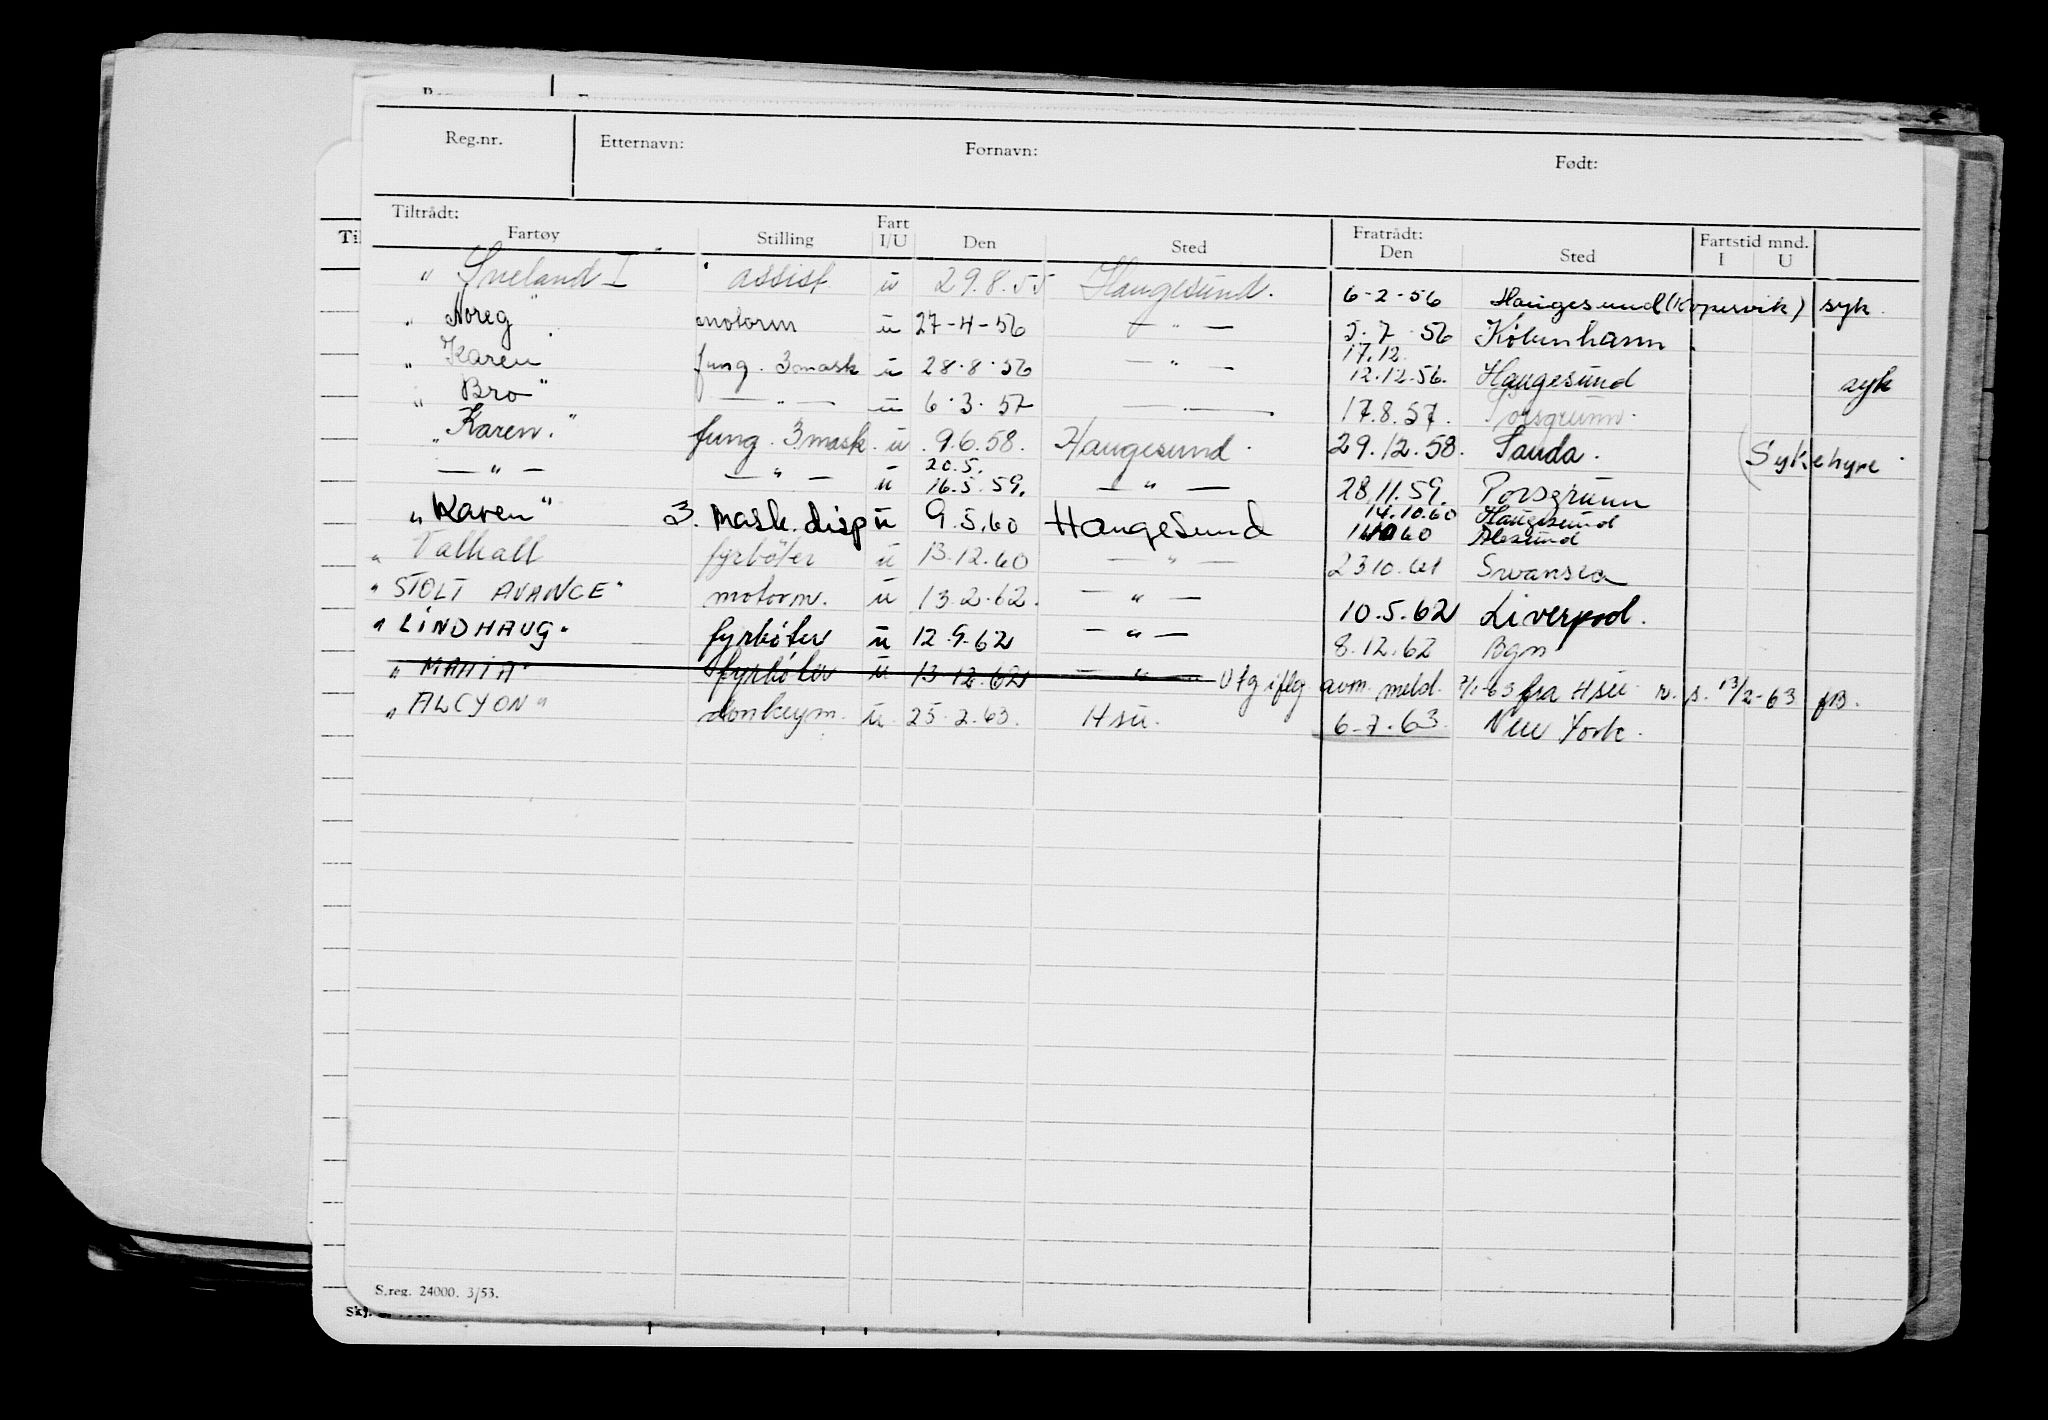 Reg.nr. Etternavn: Fornavn: Født:
Tiltrådt: Fart Fratrådt: Fartstid mnd.
Fartøy Stilling I/U Den Sted Den Sted I U
" Sneland I " assist u 29.8.55 Haugesund. 6-2-56 Haugesund (Kopervik) syk.
" Noreg " motorm u 27-4-56 — " — 5.7.56 København.
17.12.
" Karen " fung. 3 mask u 28.8.56 — " — 12.12.56. Haugesund syk
" Bro " — " — u 6.3.57 — " — 17.8.57. Porsgrunn.
" Karen. " fung. 3 mask. u 9.6.58. Haugesund. 29.12.58. Sauda. (Sykehyre
20.5.
— " — — " — u 16.5.59. — " — 28.11.59. Porsgrunn
14.10.60 Haugesund
" Karen " 3. mask. disp u 9.5.60 Haugesund 60 Alesund
" Valhall fyrbøter u 13.12.60 — " — 23.10.61 Swansea
" STOLT AVANCE " motorm. u 13.2.62. — " — 10.5.62 Liverpool.
" LINDHAUG " fyrbøter u 12.9.62 — " — 8.12.62 Bgn
" MAHIA " fyrbøter u 13.12.62 — " — Utg iflg avm. meld. 7/1-63 fra Hsu 13/2-63
" ALCYON " donkeym. u. 25.2.63. Hsu. 6-7.63. New York.
S.reg. 24000. 3/53.